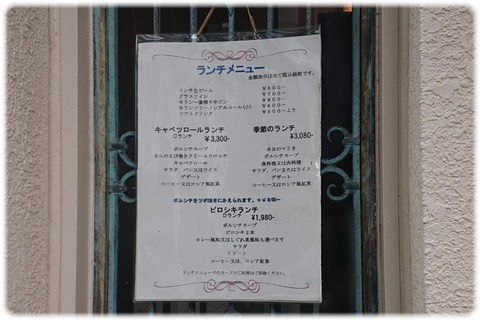 ランチメニュー
金額表示は全て税込価格です。
ランチ生ビール ￥650－
グラスワイン ￥700－
キリン一番搾り中ビン ￥800－
キリンフリーノンアルコール(小) ￥600－
ソフトドリンク ￥500－より
キャベツロールランチ
Cランチ ￥3,300-
ボルシチスープ
カニのえび巻きクリームコロッケ
キャベツロール
サラダ、パン又はライス
デザート
コーヒー又はロシア風紅茶
季節のランチ
￥3,080-
本日のマリネ
ボルシチスープ
魚料理又は肉料理
サラダ、パンまたはライス
デザート
コーヒー又はロシア風紅茶
ボルシチをツボ焼きにかえられます。＋￥800－
ピロシキランチ
Dランチ ￥1,980-
ボルシチスープ
ピロシキ2本
カレー風味又はしぐれ煮風味も選べます
サラダ
デザート
コーヒー又は、ロシア紅茶
ランチメニューでのカードのご利用はご容赦ください。